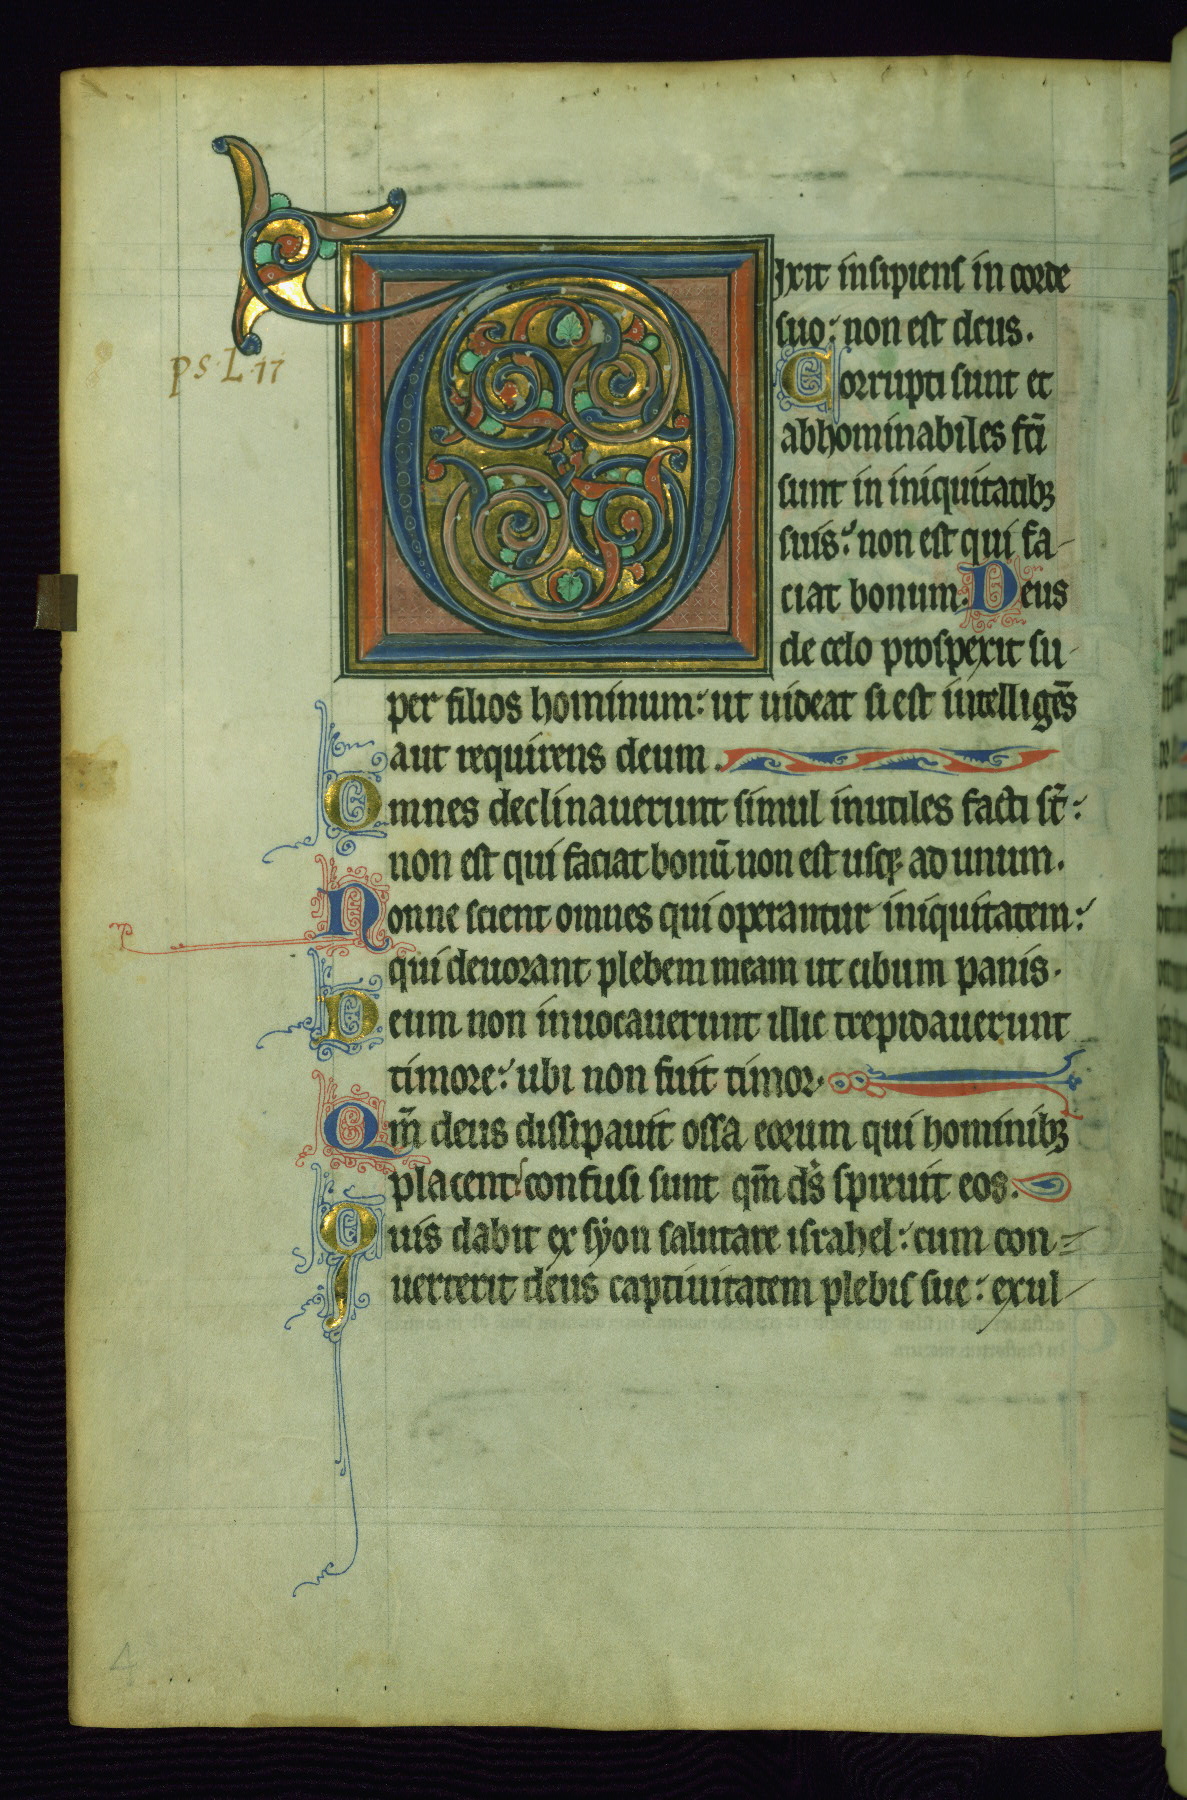 Dixit insipiens in corde
ps. L. 17
suo: non est deus.
Corrupti sunt et
abhominabiles fc̄i
sunt in iniquitatibꝫ
suis: non est qui fa-
ciat bonum: Deus
de celo prospexit su-
per filios hominum: ut uideat si est intelligēs
aut requirens deum.
Omnes declinauerunt simul inutiles facti st̄:
non est qui faciat bonū non est usqꝫ ad unum.
Nonne scient omnes qui operantur iniquitatem:
qui deuorant plebem meam ut cibum panis.
Deum non inuocauerunt illic trepidauerunt
timore: ubi non fuit timor.
Qm̄ deus dissipauit ossa eorum qui hominibꝫ
placent: confusi sunt qm̄ ds̄ spreuit eos.
Quis dabit ex syon salutare israhel: cum con-
uerterit deus captiuitatem plebis sue: exul-
4